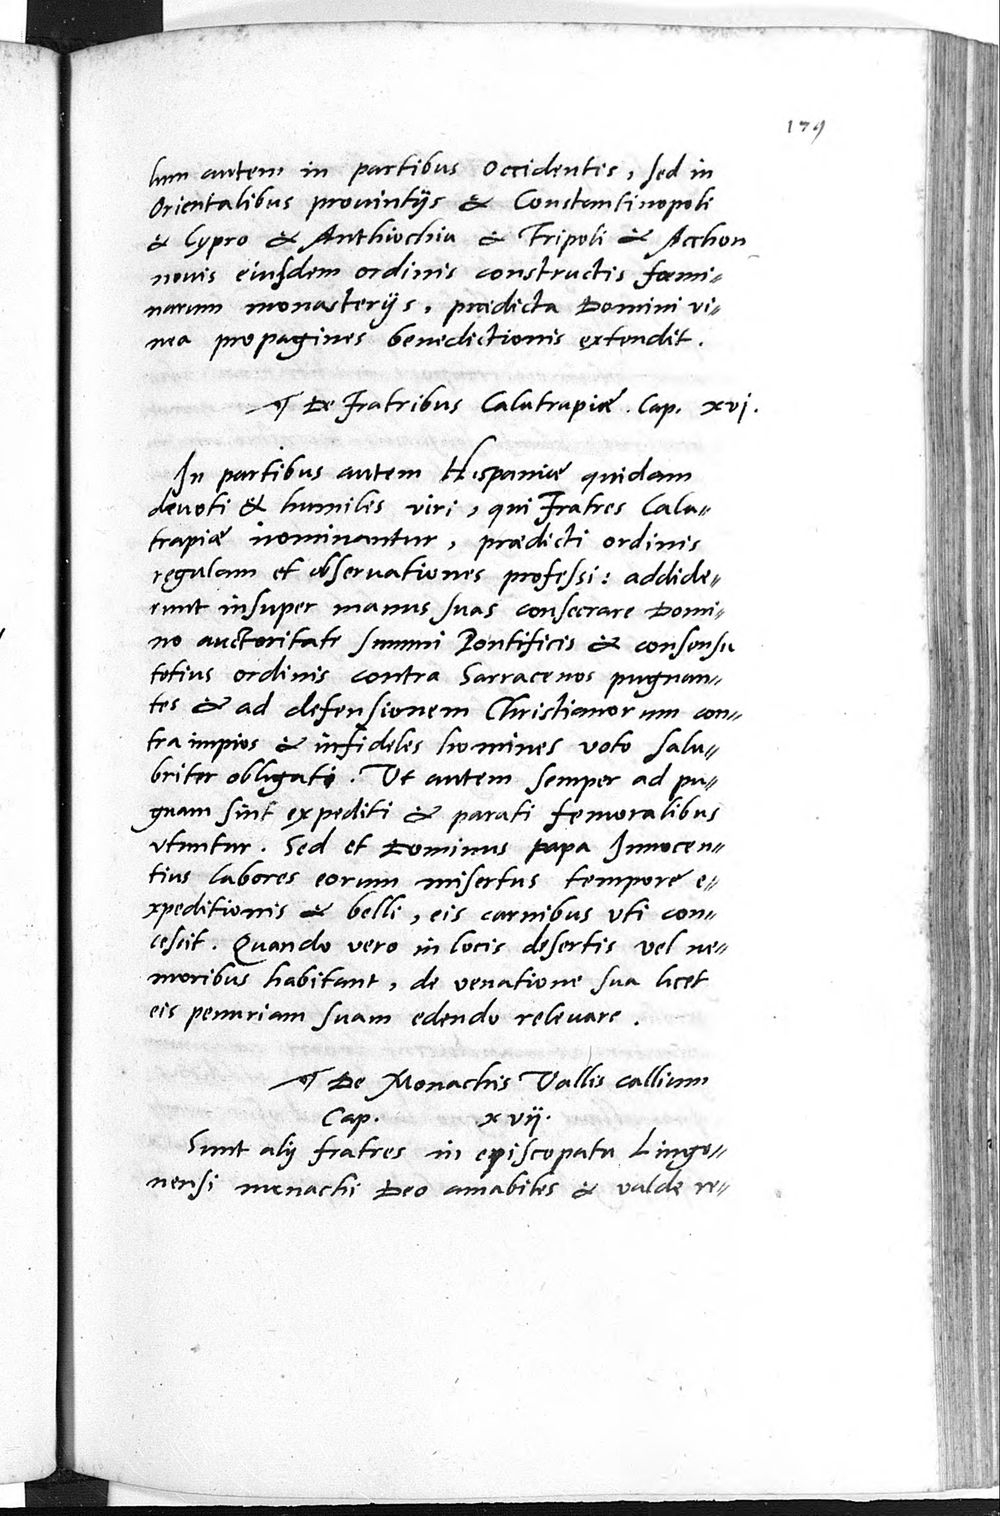 179
lum autem in partibus Occidentis, sed in
Orientalibus prouintijs & Constantinopoli
& Cypro & Anthiochia & Tripoli & Acchon
nouis eiusdem ordinis constructis fœmi„
narum monasterijs, prædicta Domini vi„
nea propagines benedictionis extendit.
¶ De Fratribus Calatrapiæ. Cap. xvj.
In partibus autem Hispaniæ quidam
deuoti & humiles viri, qui Fratres Cala„
trapiæ nominantur, prædicti ordinis
regulam et obseruationes professi: addide„
runt insuper manus suas consecrare Domi„
no auctoritate summi Pontificis & consensu
totius ordinis contra Sarracenos pugnan„
tes & ad defensionem Christianorum con„
tra impios & infideles homines voto salu„
briter obligati. Ut autem semper ad pu„
gnam sint expediti & parati femoralibus
vtuntur. Sed et Dominus papa Innocen„
tius labores eorum misertus tempore e„
xpeditionis & belli, eis carnibus vti con„
cescit. Quando vero in locis desertis vel ne„
moribus habitant, de venatione sua licet
eis penuriam suam edendo releuare.
¶ De Monachis Vallis callium
Cap. xvij.
Sunt alij fratres in episcopatu Lingo„
nensi monachi Deo amabiles & valde re„